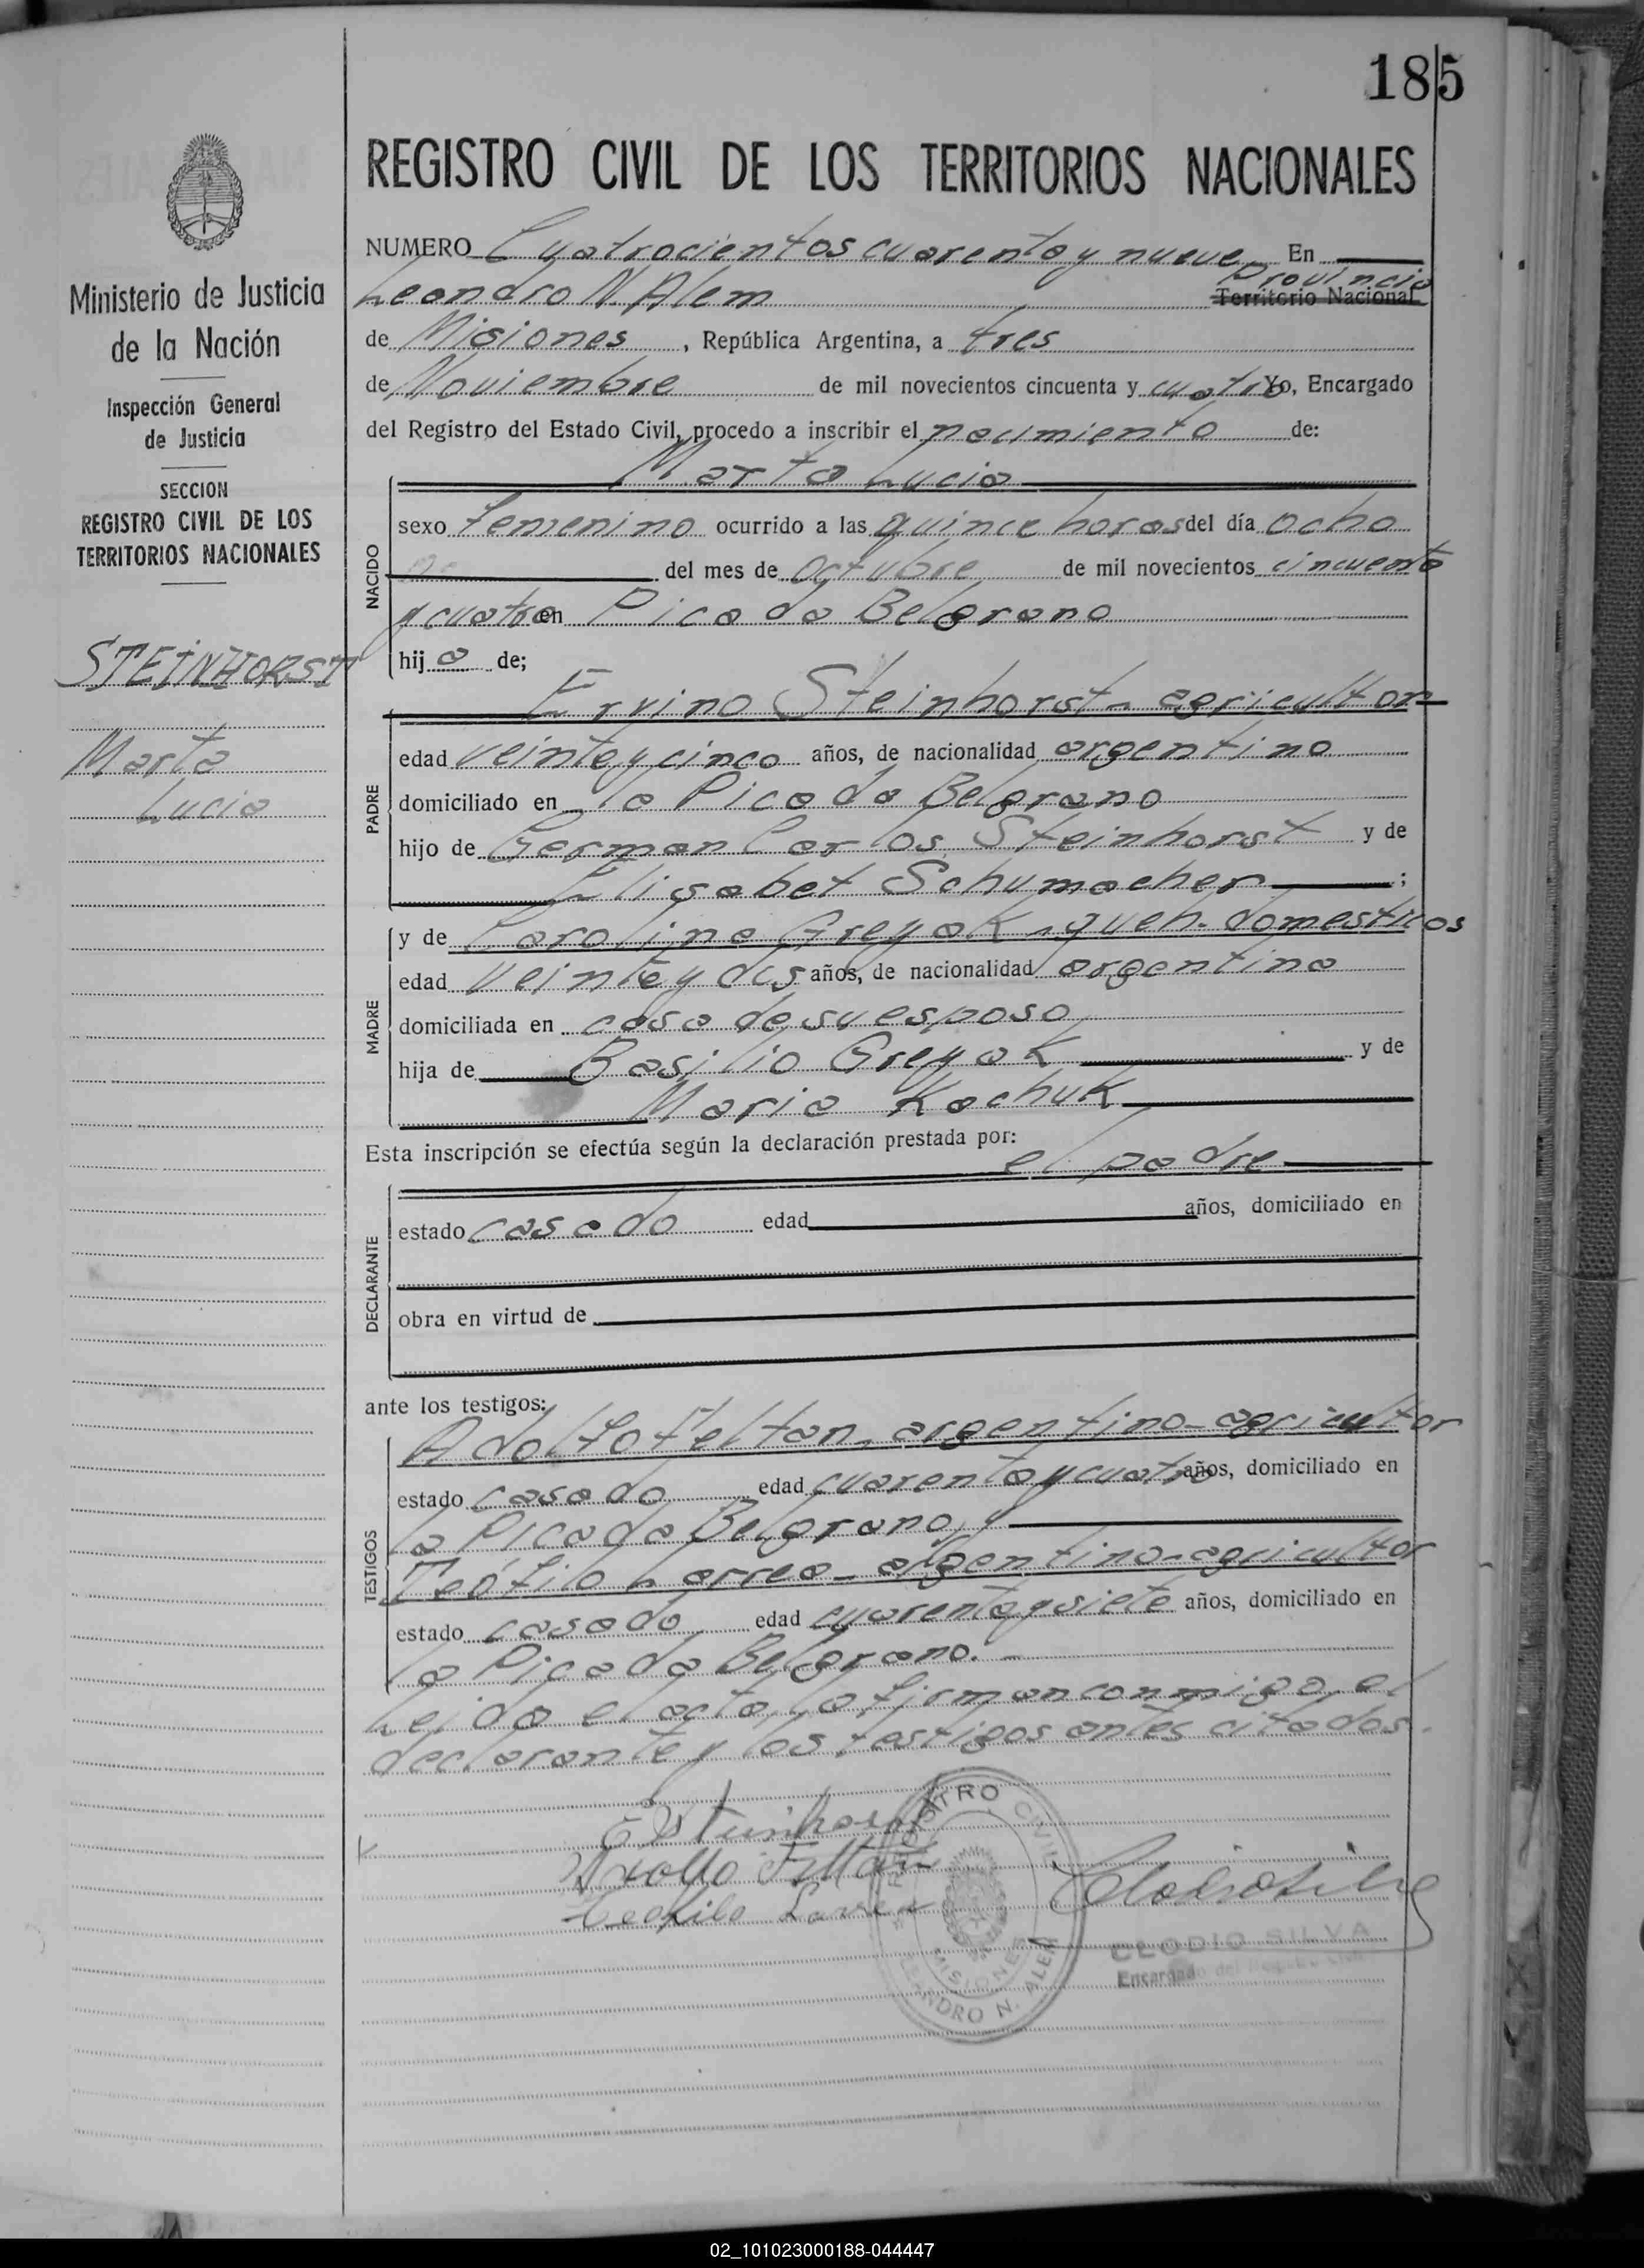 185
REGISTRO CIVIL DE LOS TERRITORIOS NACIONALES
Ministerio de Justicia
de la Nación
Inspección General
de Justicia
SECCION
REGISTRO CIVIL DE LOS
TERRITORIOS NACIONALES
STEINHORST
Marta
Lucia
NUMERO Cuatrocientos cuarenta y nueve En
Leandro N. Alem Provincia Territorio Nacional
de Misiones, República Argentina, a tres
de Noviembre de mil novecientos cincuenta y cuatro Yo, Encargado
del Registro del Estado Civil, procedo a inscribir el nacimiento de:
Marta Lucia
NACIDO
sexo femenino ocurrido a las quince horas del día ocho
del mes de octubre de mil novecientos cincuenta
y cuatro en Picada Belgrano
hija de;
Ervino Steinhorst - agricultor
PADRE
edad veinte y cinco años, de nacionalidad argentino
domiciliado en la Picada Belgrano
hijo de German Carlos Steinhorst y de
Elisabet Schumacher ;
MADRE
y de Carolina Greyak - queh. domesticos
edad veinte y dos años, de nacionalidad argentina
domiciliada en casa de su esposo
hija de Basilio Greyak y de
Maria Kachuk
Esta inscripción se efectúa según la declaración prestada por:
el padre
DECLARANTE
estado casado edad años, domiciliado en
obra en virtud de
ante los testigos:
TESTIGOS
Adolfo Feltan - argentino - agricultor
estado casado edad cuarenta y cuatro años, domiciliado en
la Picada Belgrano, y
Teófilo Larrea - argentino - agricultor
estado casado edad cuarenta y siete años, domiciliado en
la Picada Belgrano. -
Leida el acta, la firman conmigo, el
declarante y los testigos antes citados.
E Steinhorst
Adolfo Feltan
Teofilo Larrea
REGISTRO CIVIL
MISIONES
LEANDRO N. ALEM
CLODIO SILVA
Encargado del Registro Civil
02_101023000188-044447